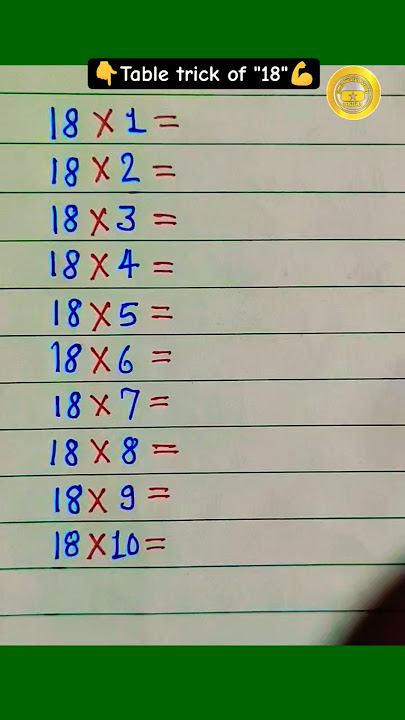 👇Table trick of "18"💪
18 × 1 =
18 × 2 =
18 × 3 =
18 × 4 =
18 × 5 =
18 × 6 =
18 × 7 =
18 × 8 =
18 × 9 =
18 × 10 =